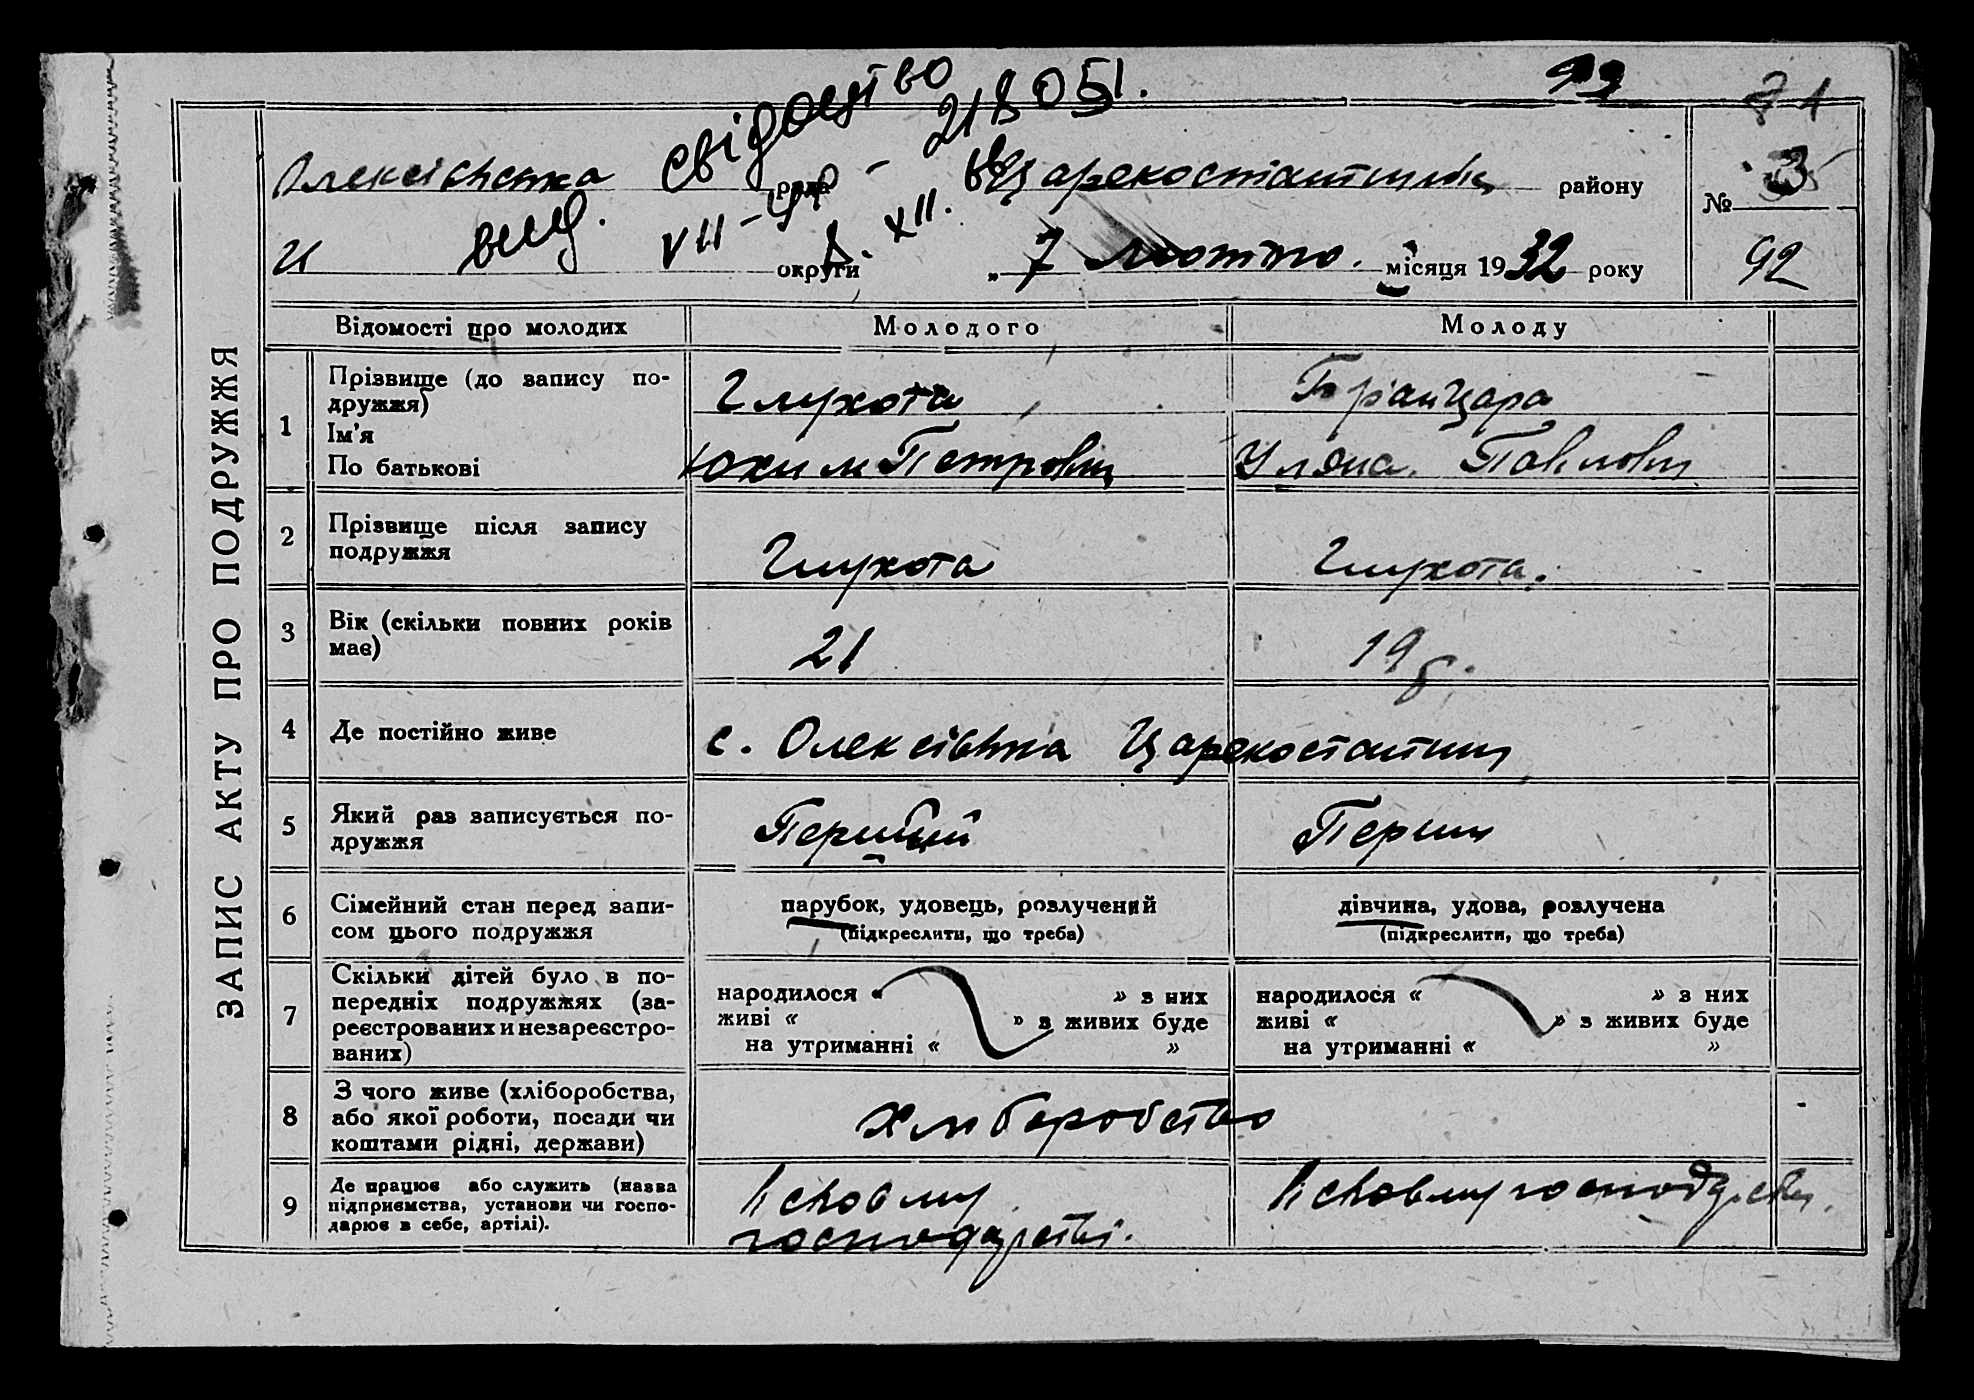 свідоцтво
218051.
92
71
Олексієвська рада Царекостянтинівск району
№ 3
вид. VII-ЧР XII.
округи „ 7 лютого. місяця 1932 року
92
ЗАПИС АКТУ ПРО ПОДРУЖЖЯ
Відомості про молодих Молодого Молоду
1 Прізвище (до запису по-
дружжя)
Ім'я
По батькові
Глухота
Юхим Петрович
Бранцара
Уляна Павловн
2 Прізвище після запису
подружжя
Глухота
Глухота.
3 Вік (скільки повних років
має)
21
19 р.
4 Де постійно живе
с. Олексієвка Царекостянтин
5 Який раз записується по-
дружжя
Перший
Перший
6 Сімейний стан перед запи-
сом цього подружжя
парубок, удовець, розлучений
(підкреслити, що треба)
дівчина, удова, розлучена
(підкреслити, що треба)
7 Скільки дітей було в по-
передніх подружжях (за-
реєстрованих и незареєстро-
ваних)
народилося « » з них
живі « » з живих буде
на утриманні « »
народилося « » з них
живі « » з живих буде
на утриманні « »
8 З чого живе (хліборобства,
або якої роботи, посади чи
коштами рідні, держави)
Хліборобство
9 Де працює або служить (назва
підприємства, установи чи госпо-
дарює в себе, артілі).
В своєму
господарстві.
В своєму господарстві.